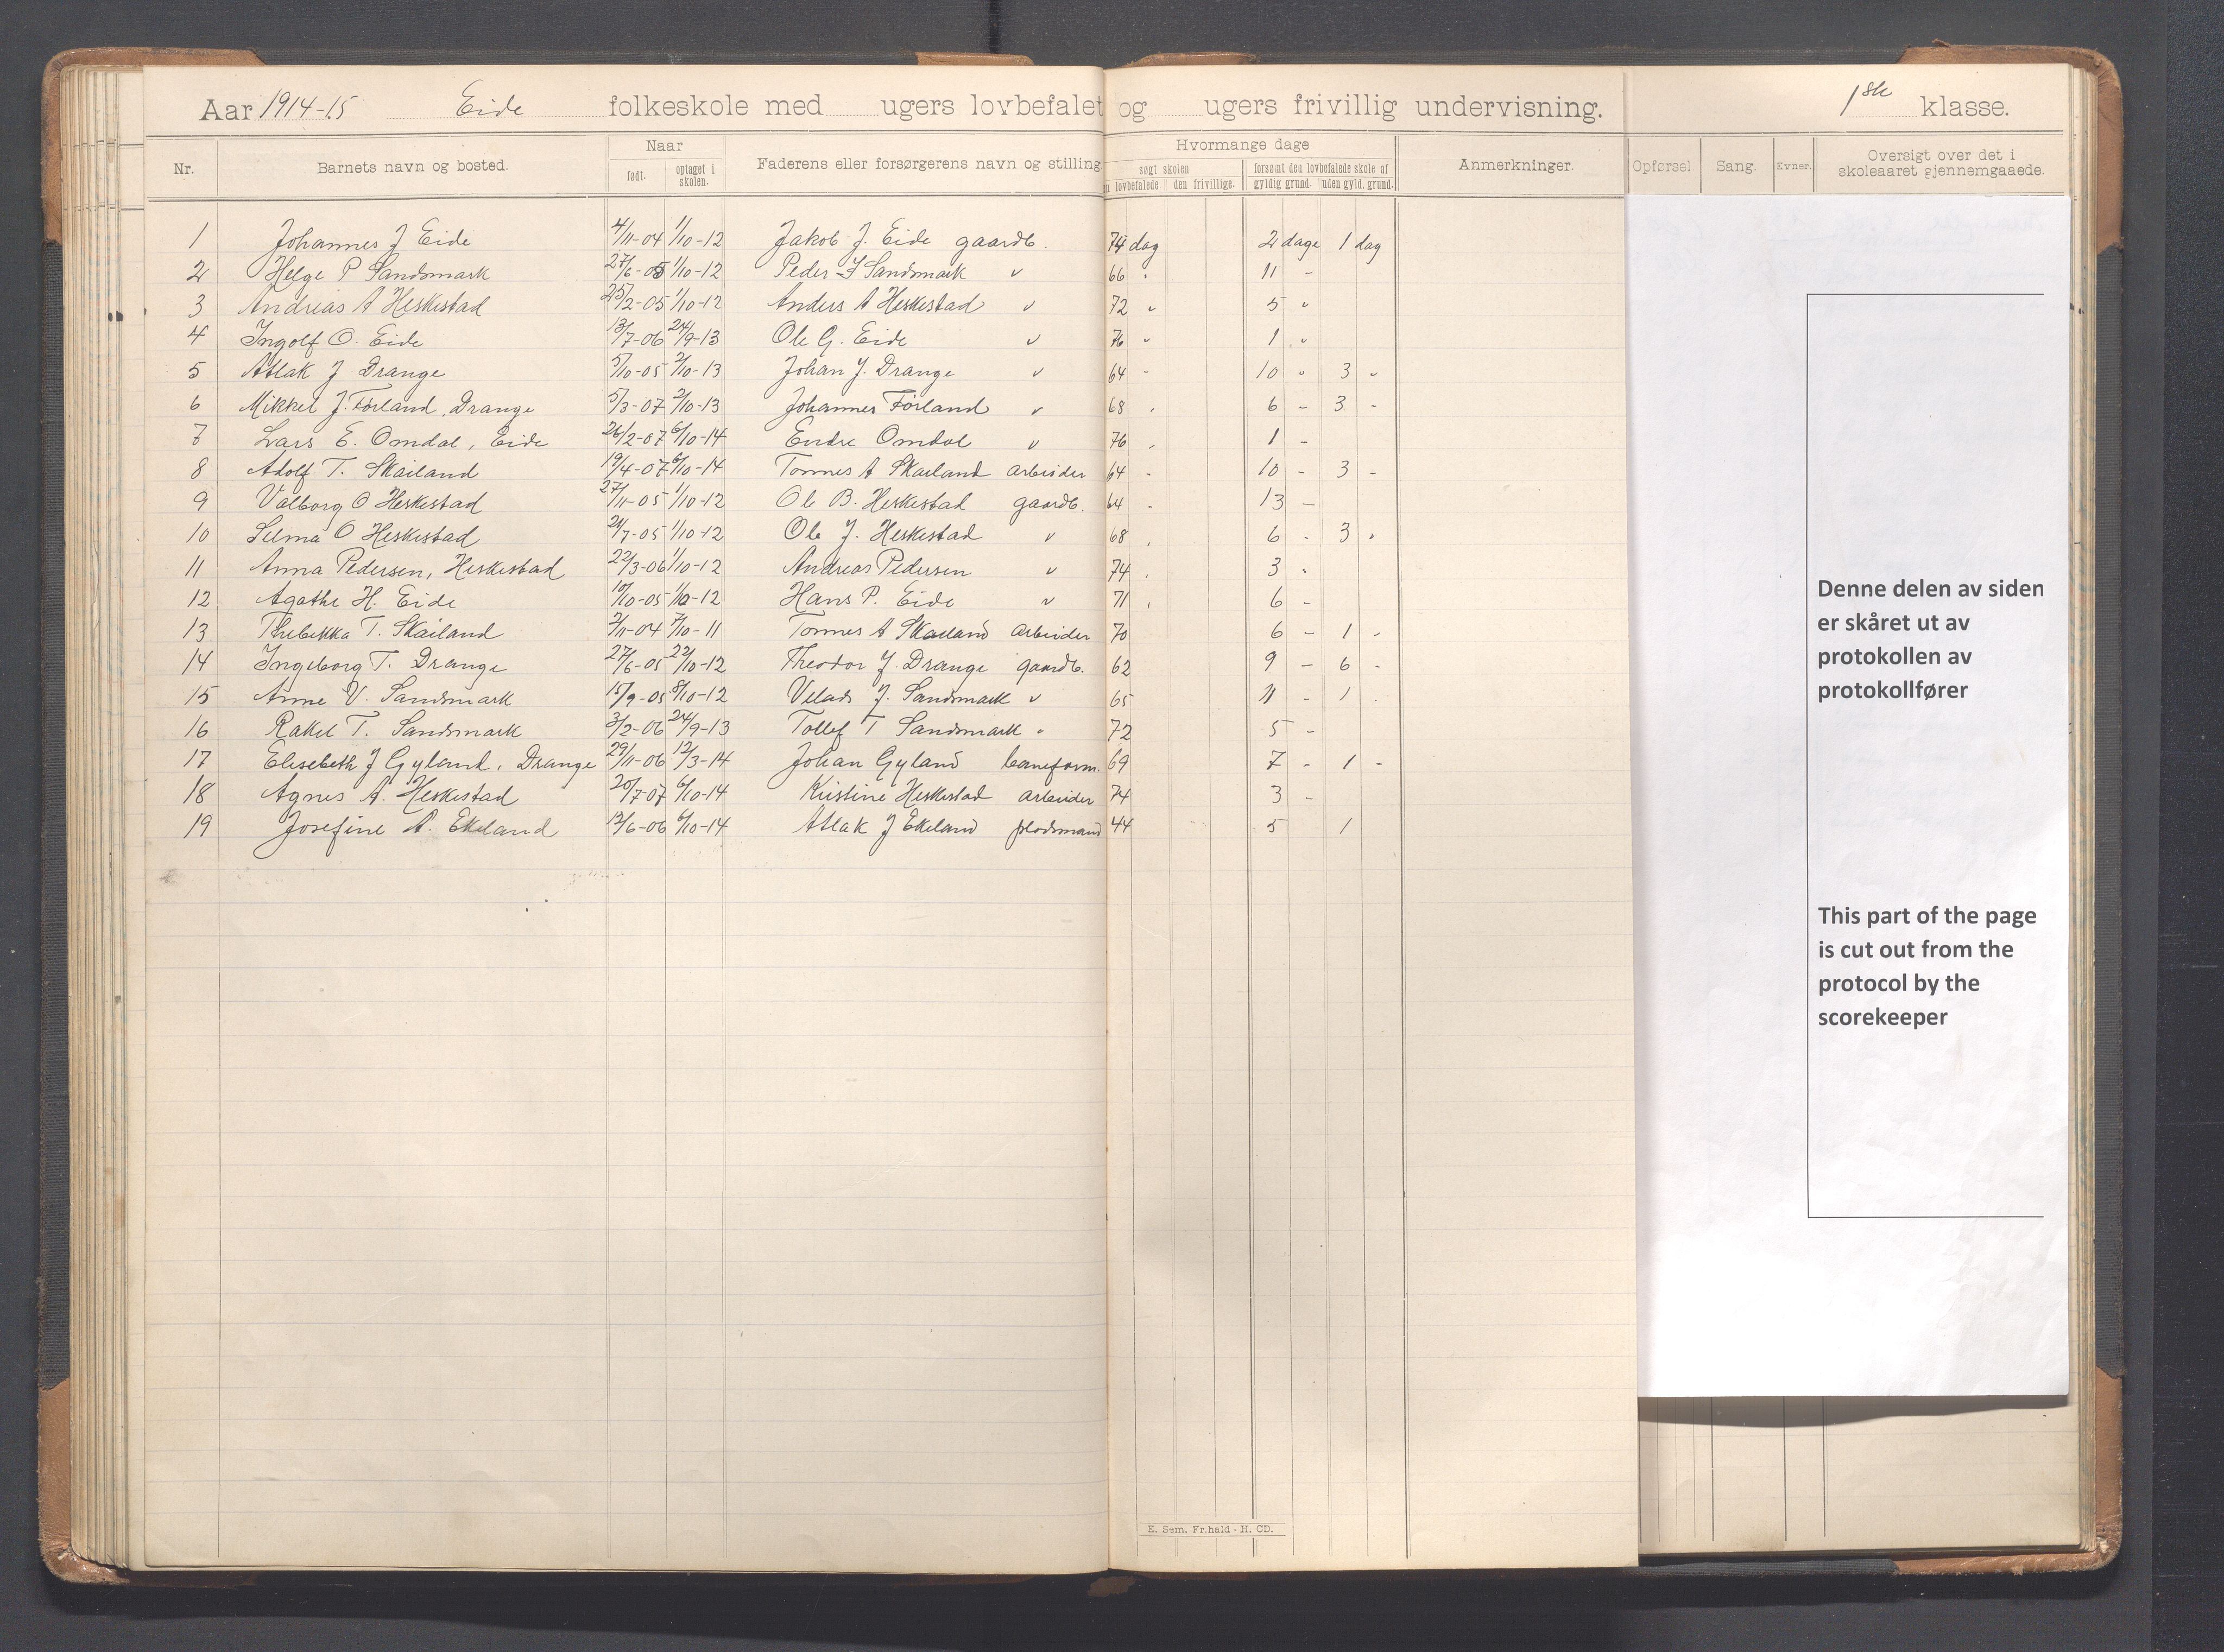 Aar 1914-15 Eide folkeskole med ugers lovbefalet og ugers frivillig undervisning. 1ste klasse.
Nr. Barnets navn og bosted. Naar født. optaget i skolen. Faderens eller forsørgerens navn og stilling Hvormange dage søgt skolen lovbefalede. den frivillige. forsømt den lovbefalede skole af gyldig grund. uden gyld. grund. Anmerkninger. Opførsel. Sang. Evner. Oversigt over det i skoleaaret gjennemgaaede.
1 Johannes J Eide 4/11-04 1/10-12 Jakob J. Eide gaardb. 74 dag 2 dage 1 dag
2 Helge P Sandsmark 27/6-05 1/10-12 Peder Sandsmark " 66 " 11 -
3 Andreas A Heskestad 25/2-05 1/10-12 Anders A Heskestad " 72 " 5 "
4 Ingolf O. Eide 13/7-06 24/9-13 Ole G. Eide " 76 " 1 "
5 Atlak J Drange 5/10-05 2/10-13 Johan J. Drange " 64 - 10 " 3 "
6 Mikkel J. Førland, Drange 5/3-07 2/10-13 Johannes Førland " 68 . 6 - 3 -
7 Lars E. Omdal, Eide 26/2-07 6/10-14 Endre Omdal " 76 . 1 -
8 Adolf T. Skailand 19/4-07 6/10-14 Tønnes A Skailand arbeider 64 - 10 - 3 -
9 Valborg O Heskestad 27/11-05 1/10-12 Ole B. Heskestad gaardb. 64 - 13 -
10 Selma O Heskestad 24/7-05 1/10-12 Ole J. Heskestad " 68 . 6 - 3 "
11 Anna Pedersen, Heskestad 22/3-06 1/10-12 Andreas Pedersen " 74 . 3 "
12 Agathe H. Eide 10/10-05 1/10-12 Hans P. Eide " 71 . 6 -
13 Thebekka T. Skailand 2/11-04 7/10-11 Tønnes A Skailand arbeider 70 6 - 1 -
14 Ingeborg T. Drange 27/6-05 22/10-12 Theodor J. Drange gaardb. 62 9 - 6 -
15 Anne V. Sandsmark 15/9-05 8/10-12 J. Sandsmark " 65 11 - 1 .
16 Rakel T. Sandsmark 3/2-06 24/9-13 Tollef T Sandsmark " 72 5 -
17 Elisebeth J Gyland, Drange 29/11-06 12/3-14 Johan Gyland baneform. 69 7 - 1 -
18 Agnes A. Heskestad 20/7-07 6/10-14 Kristine Heskestad arbeider 74 3 -
19 Josefine A. Ekeland 12/6-06 6/10-14 Atlak J Ekeland pladsmand 44 5 1
Denne delen av siden
er skåret ut av
protokollen av
protokollfører
This part of the page
is cut out from the
protocol by the
scorekeeper
E. Sem. Fr.hald - H. CD.